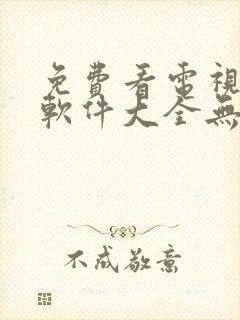 免費看電視
軟件大全無
不成敬意